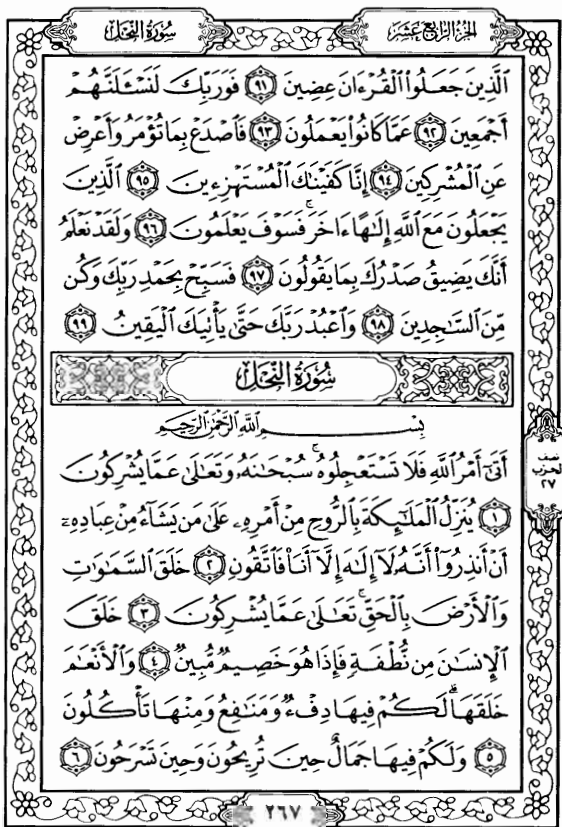 الجزء الرابع عشر
سورة النحل
ٱلَّذِينَ جَعَلُوا۟ ٱلْقُرْءَانَ عِضِينَ ٩١ فَوَرَبِّكَ لَنَسْـَٔلَنَّهُمْ
أَجْمَعِينَ ٩٢ عَمَّا كَانُوا۟ يَعْمَلُونَ ٩٣ فَٱصْدَعْ بِمَا تُؤْمَرُ وَأَعْرِضْ
عَنِ ٱلْمُشْرِكِينَ ٩٤ إِنَّا كَفَيْنَٰكَ ٱلْمُسْتَهْزِءِينَ ٩٥ ٱلَّذِينَ
يَجْعَلُونَ مَعَ ٱللَّهِ إِلَٰهًا ءَاخَرَ ۚ فَسَوْفَ يَعْلَمُونَ ٩٦ وَلَقَدْ نَعْلَمُ
أَنَّكَ يَضِيقُ صَدْرُكَ بِمَا يَقُولُونَ ٩٧ فَسَبِّحْ بِحَمْدِ رَبِّكَ وَكُن
مِّنَ ٱلسَّٰجِدِينَ ٩٨ وَٱعْبُدْ رَبَّكَ حَتَّىٰ يَأْتِيَكَ ٱلْيَقِينُ ٩٩
سُورَةُ النَّحْلِ
بِسْمِ ٱللَّهِ ٱلرَّحْمَٰنِ ٱلرَّحِيمِ
أَتَىٰٓ أَمْرُ ٱللَّهِ فَلَا تَسْتَعْجِلُوهُ ۚ سُبْحَٰنَهُۥ وَتَعَٰلَىٰ عَمَّا يُشْرِكُونَ
١ يُنَزِّلُ ٱلْمَلَٰٓئِكَةَ بِٱلرُّوحِ مِنْ أَمْرِهِۦ عَلَىٰ مَن يَشَآءُ مِنْ عِبَادِهِۦٓ
أَنْ أَنذِرُوٓا۟ أَنَّهُۥ لَآ إِلَٰهَ إِلَّآ أَنَا۠ فَٱتَّقُونِ ٢ خَلَقَ ٱلسَّمَٰوَٰتِ
وَٱلْأَرْضَ بِٱلْحَقِّ ۚ تَعَٰلَىٰ عَمَّا يُشْرِكُونَ ٣ خَلَقَ
ٱلْإِنسَٰنَ مِن نُّطْفَةٍ فَإِذَا هُوَ خَصِيمٌ مُّبِينٌ ٤ وَٱلْأَنْعَٰمَ
خَلَقَهَا ۗ لَكُمْ فِيهَا دِفْءٌ وَمَنَٰفِعُ وَمِنْهَا تَأْكُلُونَ
٥ وَلَكُمْ فِيهَا جَمَالٌ حِينَ تُرِيحُونَ وَحِينَ تَسْرَحُونَ ٦
نصف
الحزب
٢٧
٢٦٧